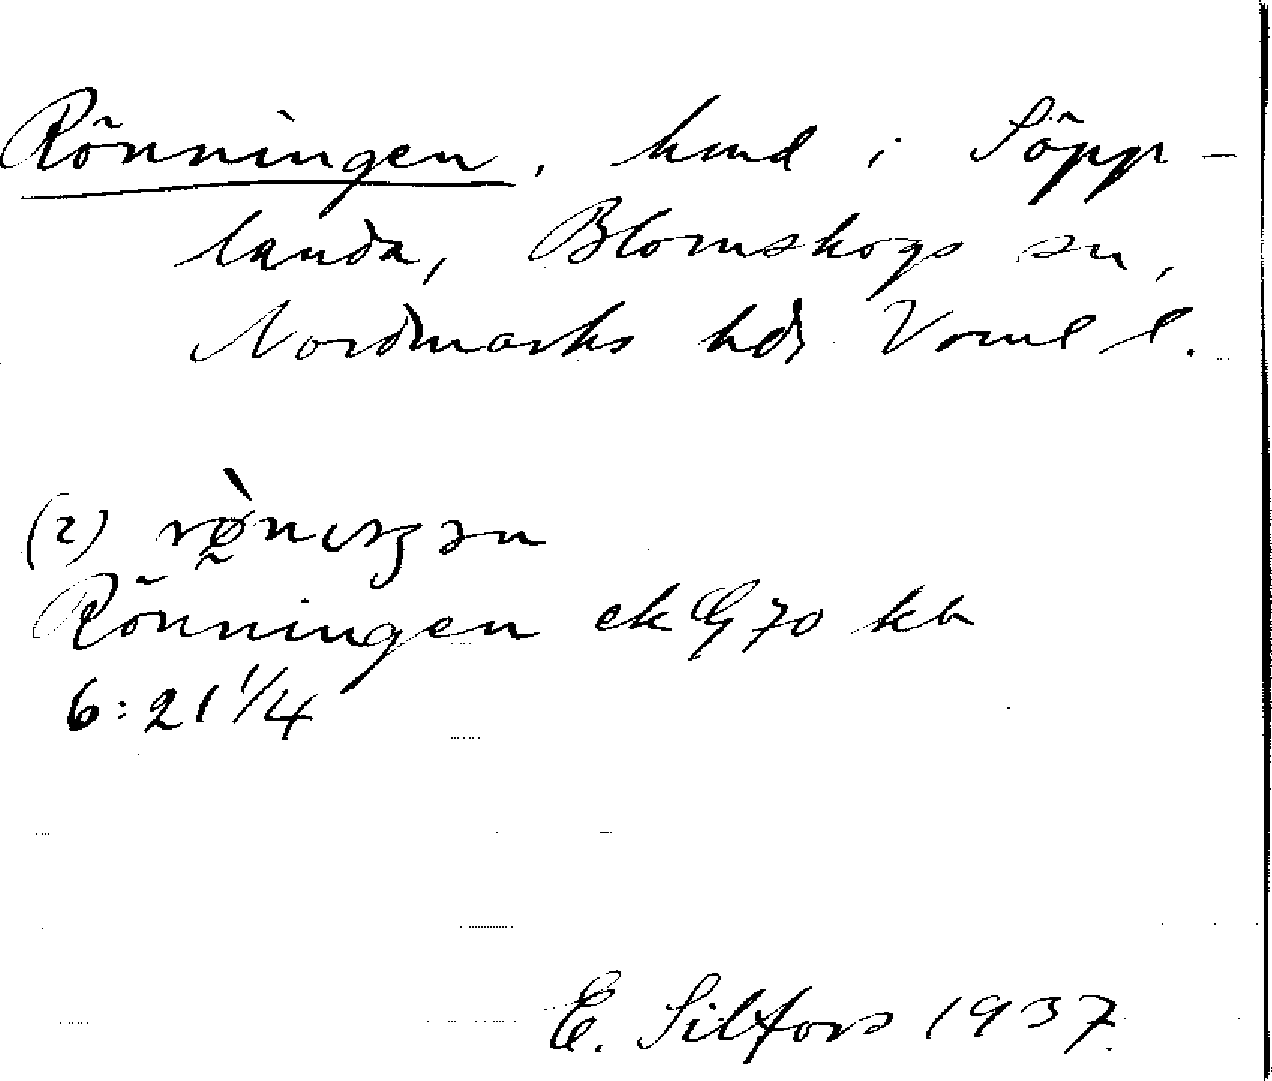 Rönningen, hmd i Söpp-
landa, Blomskogs sn,
Nordmarks hds Vrml l.
(2)
Rönningen ek G 70 kb
6:21 1/4
E. Silfors 1937.